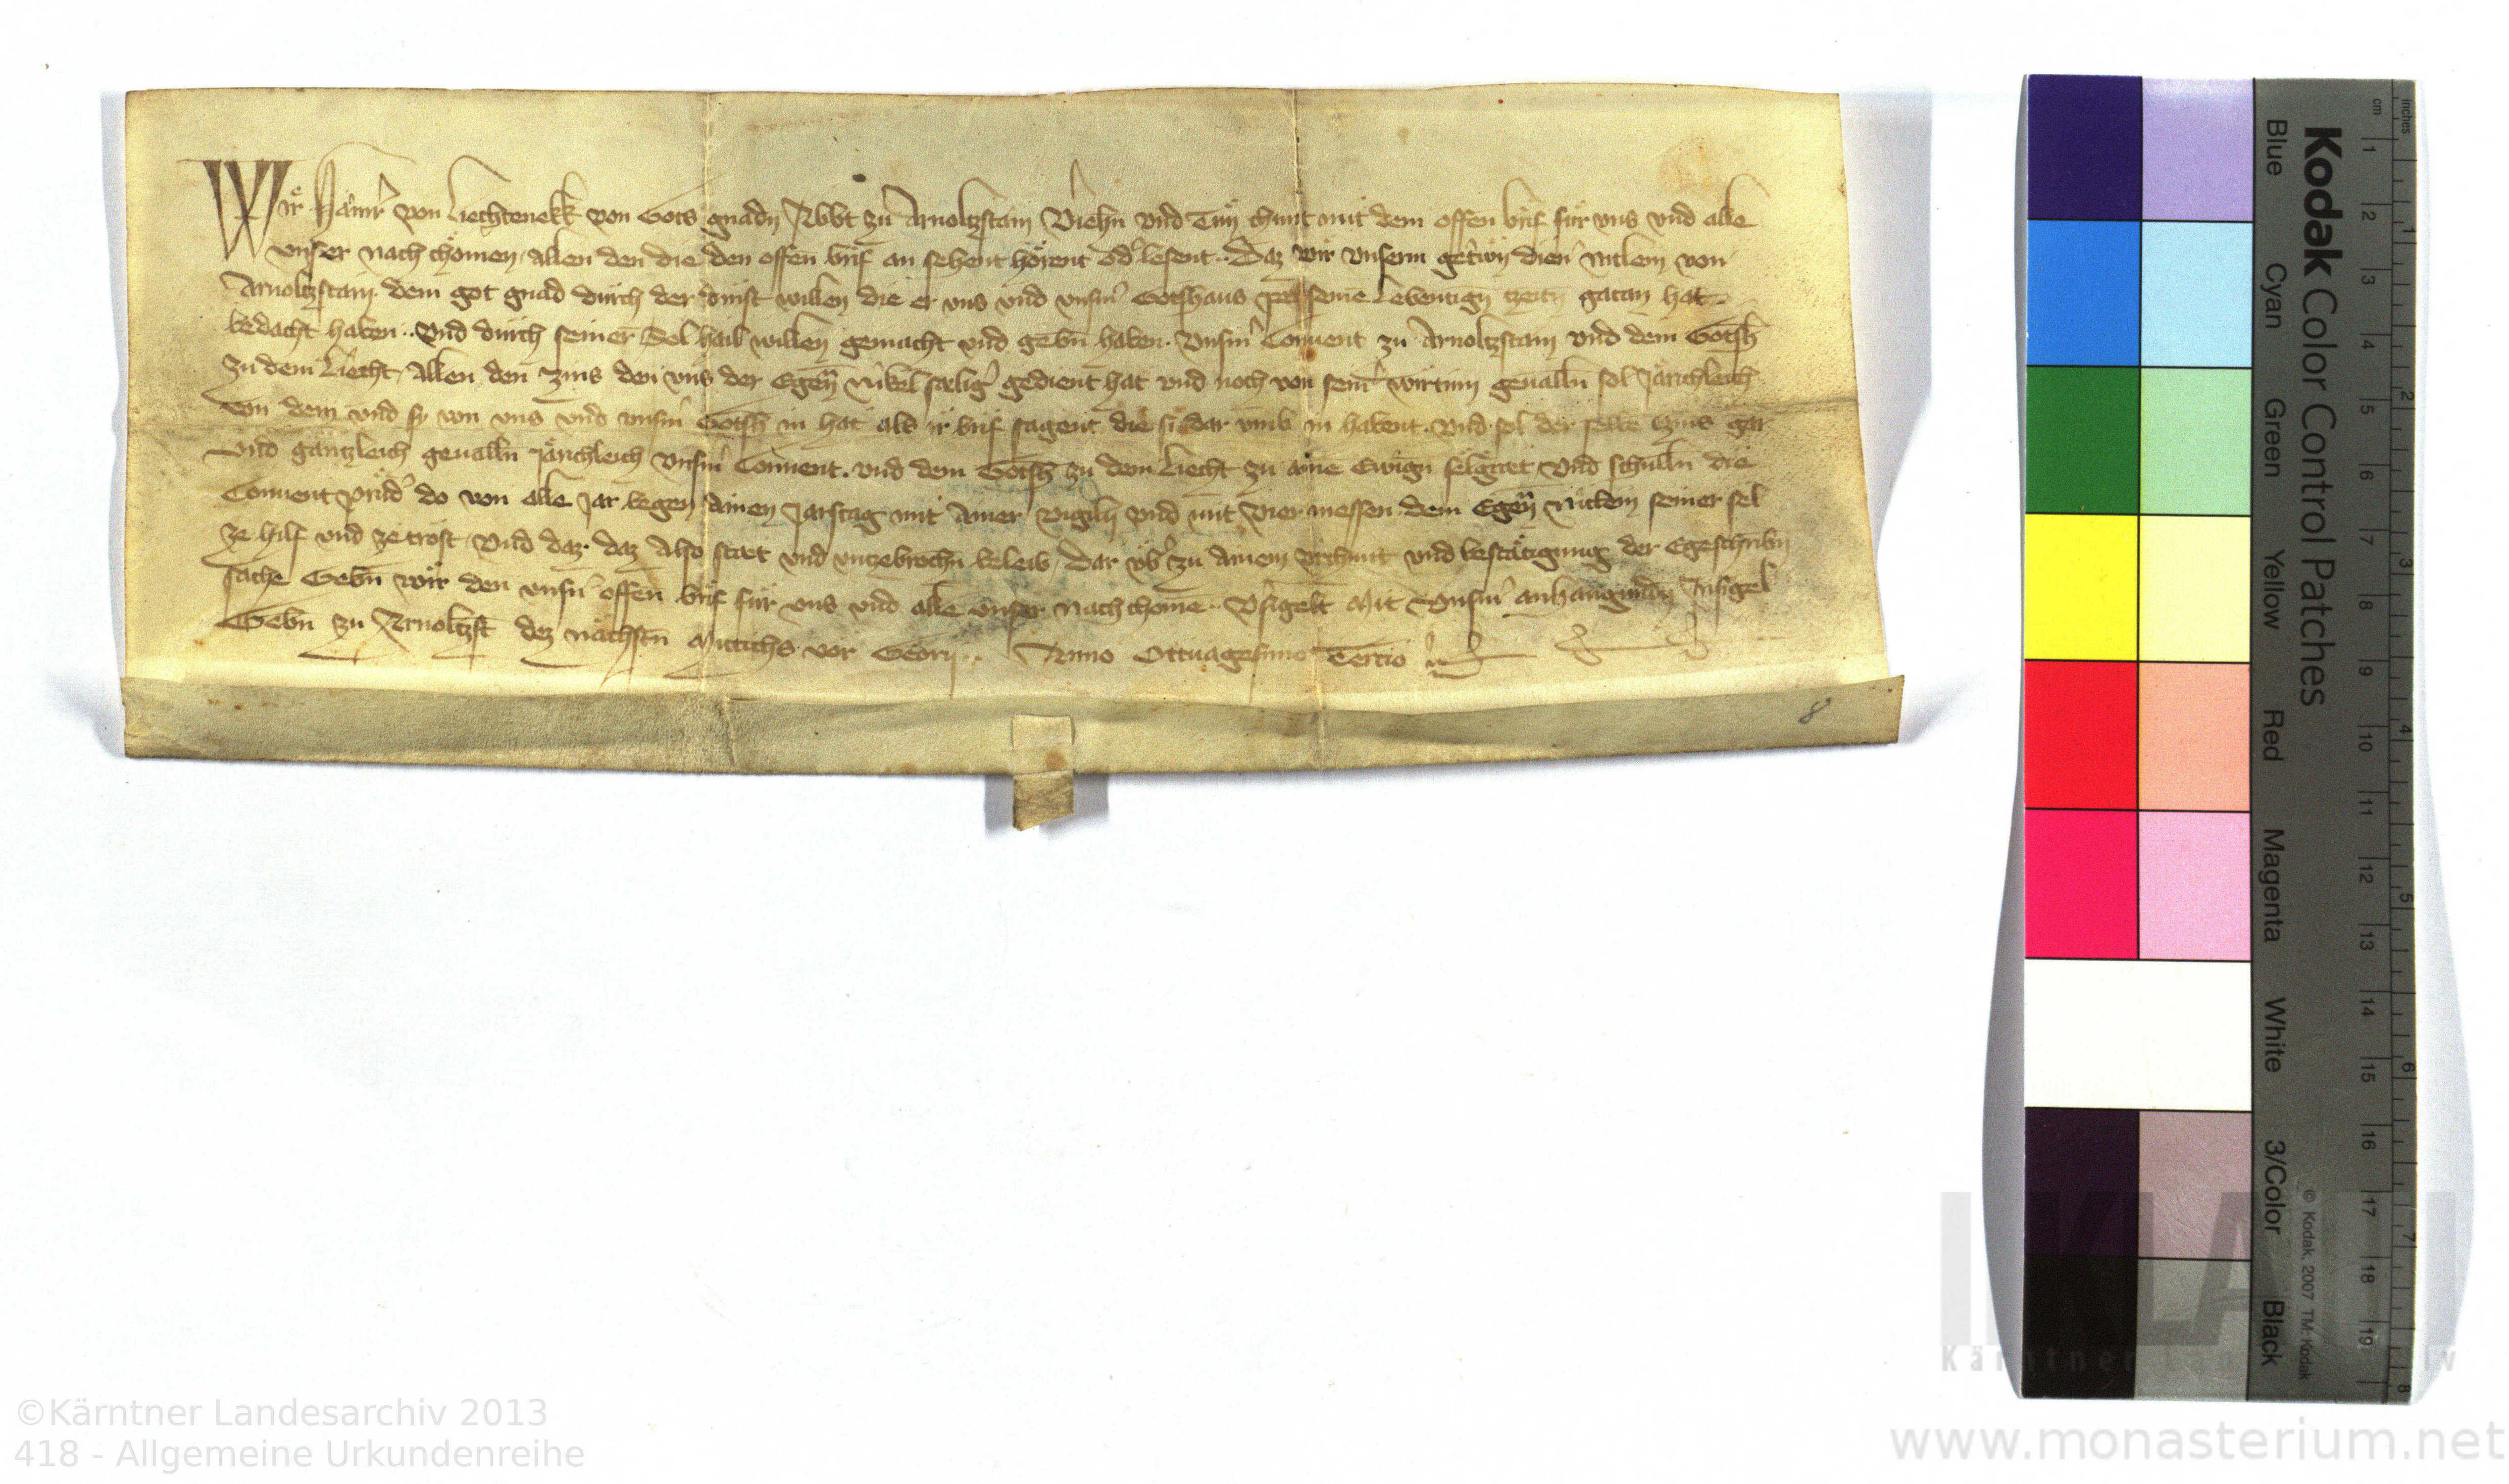 Wir Hainr von Liechtenekk von Gots gnadn Abbt zu Arnoltzstain Viehn vnd Tun chunt mit dem offen brif fur vns vnd alle
vnser nach chomen, Allen den die den offen brif an sehent horent od lesent.. Daz wir vnserm getrwn dien Niclein von
Arnoltzstain dem got gnad durch der dinst willen die er vns vnd vnserm Gotshaus seine Lebentign tzeitn getan hat
bedacht haben.. Vnd durch seiner Sel hail willen gemacht vnd gebn haben. Vnserm Conuent zu Arnoltzstain vnd dem Gotsh
zu dem Liecht, Allen den zins den vns der Egen Nikel selig gedient hat vnd noch von seinr wirtinn geualln sol Jarichleich
Von dem vnd sy von vns vnd vnserm Gotsh in hat als ir brif sagent die si dar vmb in habent. Vnd sol der selbe zins gar
vnd gantzleich geualln Jarichleich Vnserm Conuent. vnd dem Gotsh zu dem Liecht zu aine Ewign selgeret Vnd schulln die
Conuent prud do von alle Jar. begen Ainen Jarstag mit Ainer vigilii vnd mit Vier messen dem Egen Niclein seiner sel
ze hilf vnd ze trost. Vnd daz daz Also staet vnd vnzebrochn beleib, Dar vb zu Ainem vrchunt vnd bestatigung der Egeschribn
sache Gebn wir den vnsern offen brif fur vns vnd alle vnser nach chome.. Vsigelt Mit Vnserm anhangundn Insigel
Gebn zu Arnoltzst dez nachstn Mitichs vor Georii.. Anno Octuagesimo Tercio
8
Kodak Color Control Patches
Blue Cyan Green Yellow Red Magenta White 3/Color Black
© Kodak, 2007 TM: Kodak
cm 1 2 3 4 5 6 7 8 9 10 11 12 13 14 15 16 17 18 19
inches 1 2 3 4 5 6 7 8
KLA
©Kärntner Landesarchiv 2013
418 - Allgemeine Urkundenreihe
www.monasterium.net